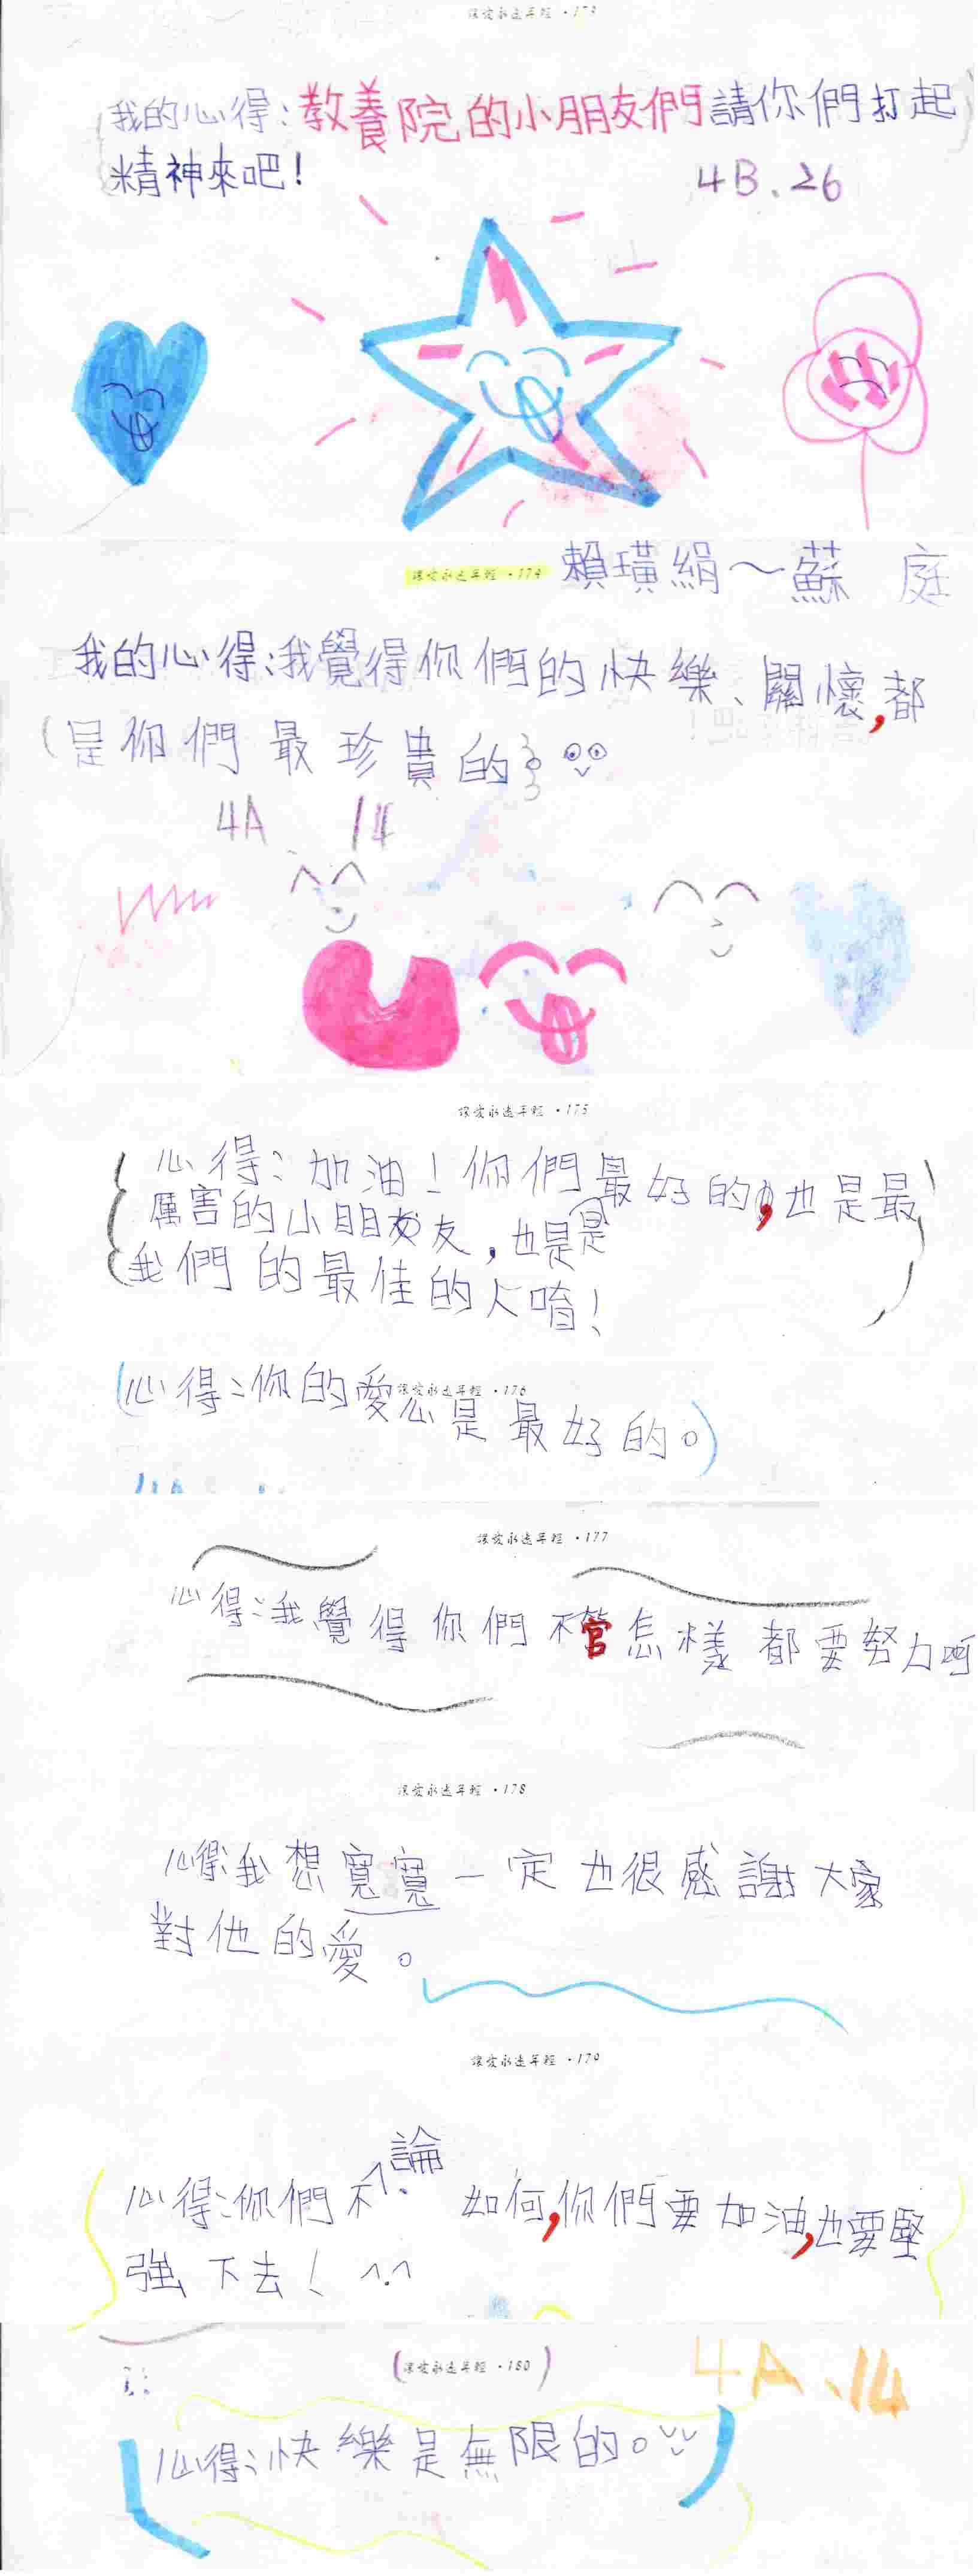 讓愛永遠年輕 ·173
我的心得:教養院的小朋友們請你們打起
精神來吧!
4B、26
讓愛永遠年輕 ·174
賴璜絹～蘇 庭
我的心得:我覺得你們的快樂、關懷,都
(是你們最珍貴的
4A、14
讓愛永遠年輕 ·175
心得:加油!你們最好的,也是最
厲害的小朋友,也是
我們的最佳的人唷!
讓愛永遠年輕 ·176
(心得:你的愛心是最好的。)
讓愛永遠年輕 ·177
心得:我覺得你們不管怎樣都要努力呵
讓愛永遠年輕 ·178
心得:我想寬寬一定也很感謝大家
對他的愛。
讓愛永遠年輕 ·179
心得:你們不論如何,你們要加油,也要堅
強下去! ^.^
(讓愛永遠年輕 ·180)
4A、14
心得:快樂是無限的。